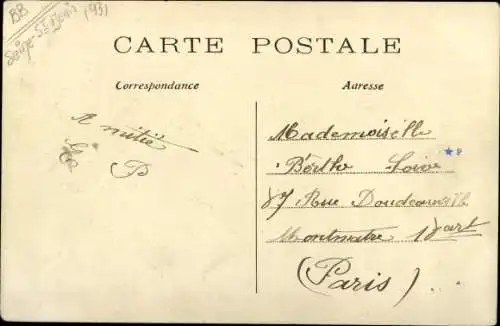 BB
Seine-St Denis (93)
CARTE POSTALE
Correspondance
Adresse
Amitié
P
Mademoiselle
Berthe Loive
87 Rue Doudeauville
Montmatre 18 art
(Paris)